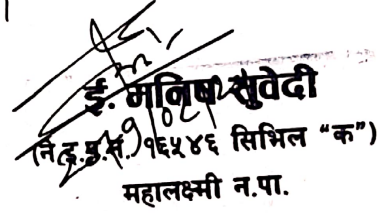 ई. मनिष सुवेदी
(ने.इ.प.सं. १६५४६ सिभिल "क")
महालक्ष्मी न.पा.